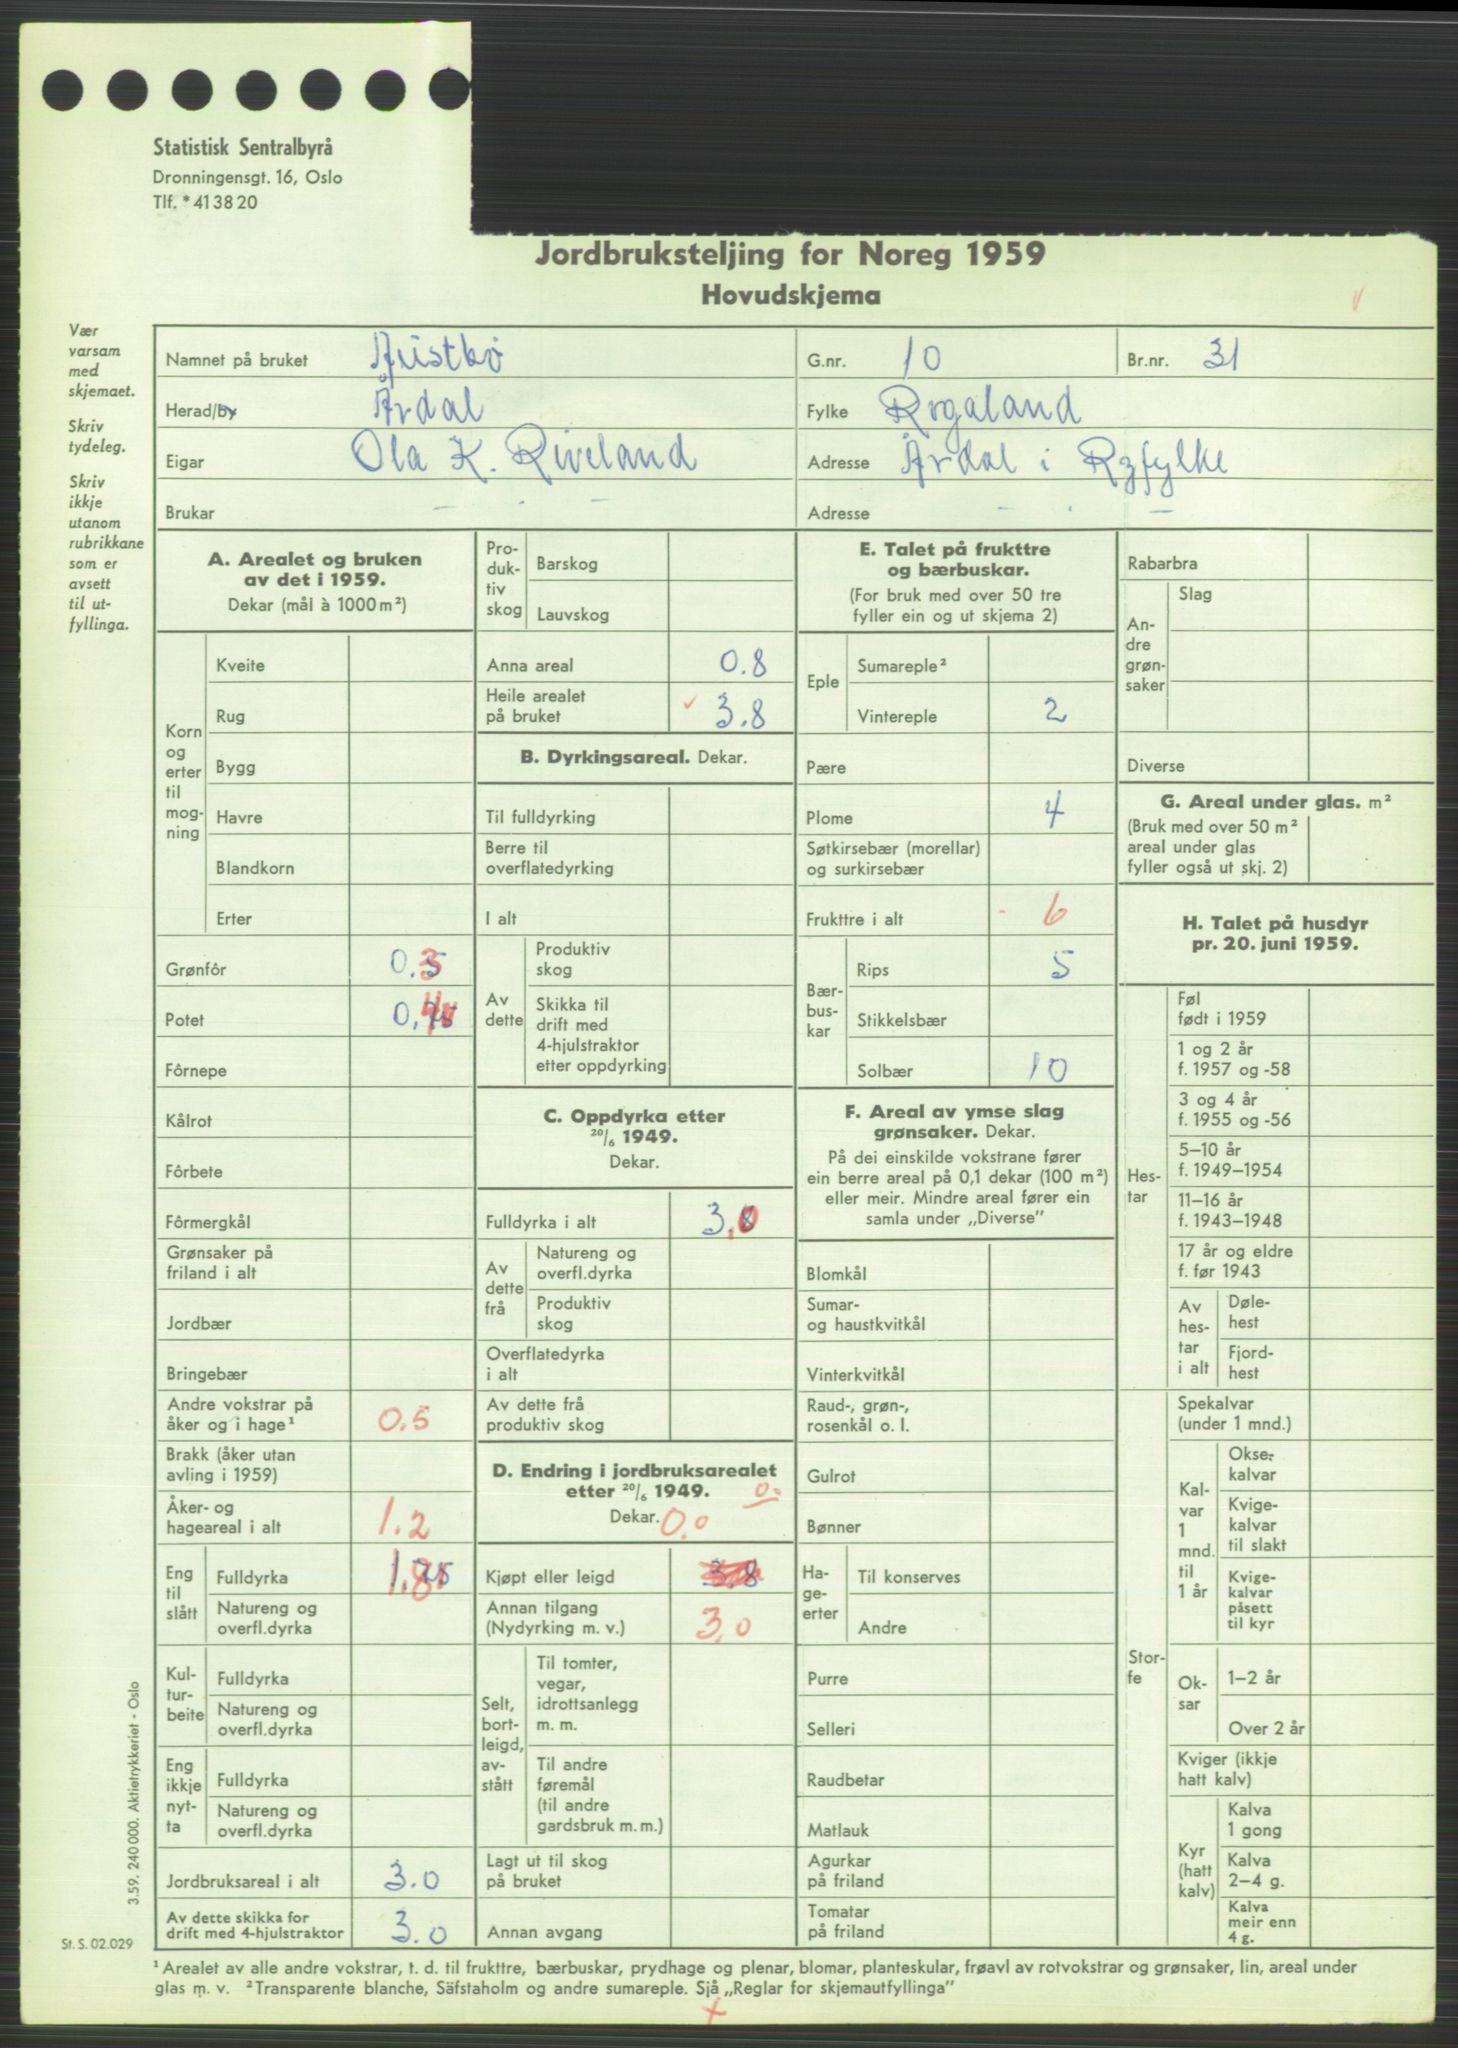 Statistisk Sentralbyrå
Dronningensgt. 16, Oslo
Tlf. * 41 38 20
Jordbruksteljing for Noreg 1959
Hovudskjema
Vær
varsam
med
skjemaet.
Skriv
tydeleg.
Skriv
ikkje
utanom
rubrikkane
som er
avsett
til ut-
fyllinga.
Namnet på bruket Austbø G.nr. 10 Br.nr. 31
Herad/by Årdal Fylke Rogaland
Eigar Ola K. Riveland Adresse Årdal i Ryfylke
Brukar — " — Adresse — " —
A. Arealet og bruken
av det i 1959.
Dekar (mål à 1000 m²)
Korn
og
erter
til
mog-
ning
Kveite
Rug
Bygg
Havre
Blandkorn
Erter
Grønfôr 0.3
Potet 0.4
Fôrnepe
Kålrot
Fôrbete
Fôrmergkål
Grønsaker på
friland i alt
Jordbær
Bringebær
Andre vokstrar på
åker og i hage¹ 0.5
Brakk (åker utan
avling i 1959)
Åker- og
hageareal i alt 1.2
Eng
til
slått
Fulldyrka 1.8
Natureng og
overfl.dyrka
Kul-
tur-
beite
Fulldyrka
Natureng og
overfl.dyrka
Eng
ikkje
nyt-
ta
Fulldyrka
Natureng og
overfl.dyrka
Jordbruksareal i alt 3.0
Av dette skikka for
drift med 4-hjulstraktor 3.0
Pro-
duk-
tiv
skog
Barskog
Lauvskog
Anna areal 0.8
Heile arealet
på bruket 3.8
B. Dyrkingsareal. Dekar.
Til fulldyrking
Berre til
overflatedyrking
I alt
Av
dette
Produktiv
skog
Skikka til
drift med
4-hjulstraktor
etter oppdyrking
C. Oppdyrka etter
20/6 1949.
Dekar.
Fulldyrka i alt 3.0
Av
dette
frå
Natureng og
overfl.dyrka
Produktiv
skog
Overflatedyrka
i alt
Av dette frå
produktiv skog
D. Endring i jordbruksarealet
etter 20/6 1949. 0.
Dekar. 0.0
Kjøpt eller leigd 3.8
Annan tilgang
(Nydyrking m. v.) 3.0
Selt,
bort-
leigd,
av-
stått
Til tomter,
vegar,
idrottsanlegg
m. m.
Til andre
føremål
(til andre
gardsbruk m. m.)
Lagt ut til skog
på bruket
Annan avgang
E. Talet på frukttre
og bærbuskar.
(For bruk med over 50 tre
fyller ein og ut skjema 2)
Eple
Sumareple²
Vintereple 2
Pære
Plome 4
Søtkirsebær (morellar)
og surkirsebær
Frukttre i alt - 6
Bær-
bus-
kar
Rips 5
Stikkelsbær
Solbær 10
F. Areal av ymse slag
grønsaker. Dekar.
På dei einskilde vokstrane fører
ein berre areal på 0,1 dekar (100 m²)
eller meir. Mindre areal fører ein
samla under „Diverse”
Blomkål
Sumar-
og haustkvitkål
Vinterkvitkål
Raud-, grøn-,
rosenkål o. l.
Gulrot
Bønner
Ha-
ge-
erter
Til konserves
Andre
Purre
Selleri
Raudbetar
Matlauk
Agurkar
på friland
Tomatar
på friland
Rabarbra
An-
dre
grøn-
saker
Slag
Diverse
G. Areal under glas. m²
(Bruk med over 50 m²
areal under glas
fyller også ut skj. 2)
H. Talet på husdyr
pr. 20. juni 1959.
Hes-
tar
Føl
født i 1959
1 og 2 år
f. 1957 og -58
3 og 4 år
f. 1955 og -56
5–10 år
f. 1949–1954
11–16 år
f. 1943–1948
17 år og eldre
f. før 1943
Av
hes-
tar
i alt
Døle-
hest
Fjord-
hest
Stor-
fe
Spekalvar
(under 1 mnd.)
Kal-
var
1
mnd.
til
1 år
Okse-
kalvar
Kvige-
kalvar
til slakt
Kvige-
kalvar
påsett
til kyr
Ok-
sar
1–2 år
Over 2 år
Kviger (ikkje
hatt kalv)
Kyr
(hatt
kalv)
Kalva
1 gong
Kalva
2–4 g.
Kalva
meir enn
4 g.
3.59. 240 000. Aktietrykkeriet - Oslo
St. S. 02.029
¹ Arealet av alle andre vokstrar, t. d. til frukttre, bærbuskar, prydhage og plenar, blomar, planteskular, frøavl av rotvokstrar og grønsaker, lin, areal under
glas m. v. ² Transparente blanche, Säfstaholm og andre sumareple. Sjå „Reglar for skjemautfyllinga”